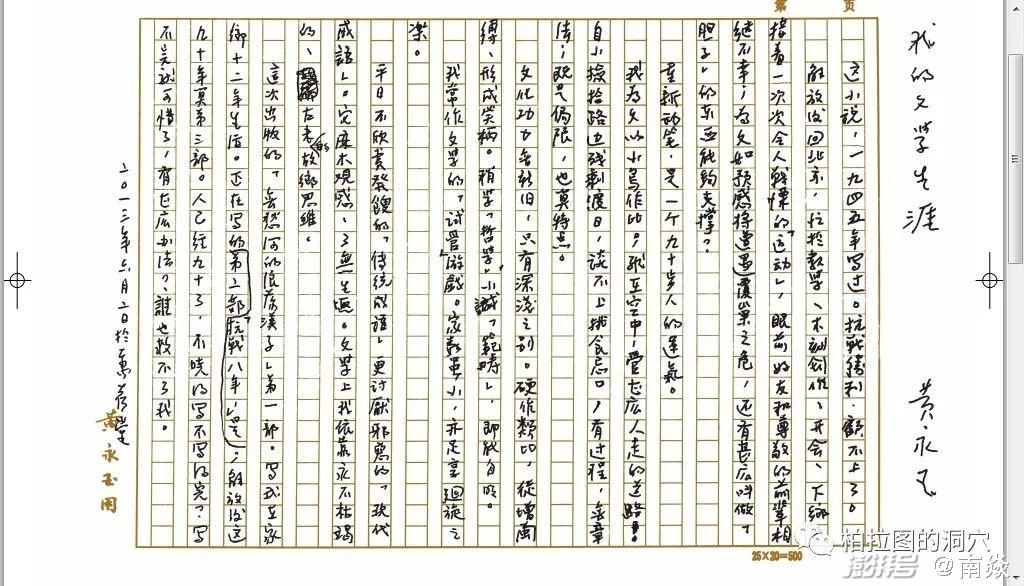 第 页
我的文学生涯
黄永玉
这小说，一九四五年写过。抗战胜利，顾不上了。
解放后回北京，忙于教学、木刻创作、开会、下乡，
接着一次次令人战慄的「运动」，眼前好友和尊敬的前辈相
继不幸；为文如预感将遭遇覆巢之危，还有甚么叫做「
胆子」的东西能够支撑？
重新动笔，是一个九十岁人的运气。
我为文以小鸟作比，飞在空中，管甚么人走的道路！
自小捡拾路边残剩度日，谈不上挑食忌口，有过程，无章
法；既是局限，也算特点。
文化功力无新旧，只有深浅之别。硬作类比，徒增茼
缚，形成笑柄。稍学「哲学」小识「範畴」，即能自明。
我常作文学的「试管」游戏。家数虽小，亦足享迴旋之
乐。
平日不欣赏发馊的「传统成语」，更讨厌邪恶的「现代
成语」。它麻木观感、了無生趣。文学上我依靠永不枯竭
的、古老的故乡思维。
这次出版的「无愁河的浪荡汉子」第一部。写我在家
乡十二年生活。正在写的第二部「抗战八年」是；解放后这
九十年算第三部。人已经九十了，不晓得写不写得完？写
不完就可惜了，有甚么办法？谁也救不了我。
二〇一三年六月二日於万荷堂
黄永玉用
25×20=500
柏拉图的洞穴
澎湃号 @南焱